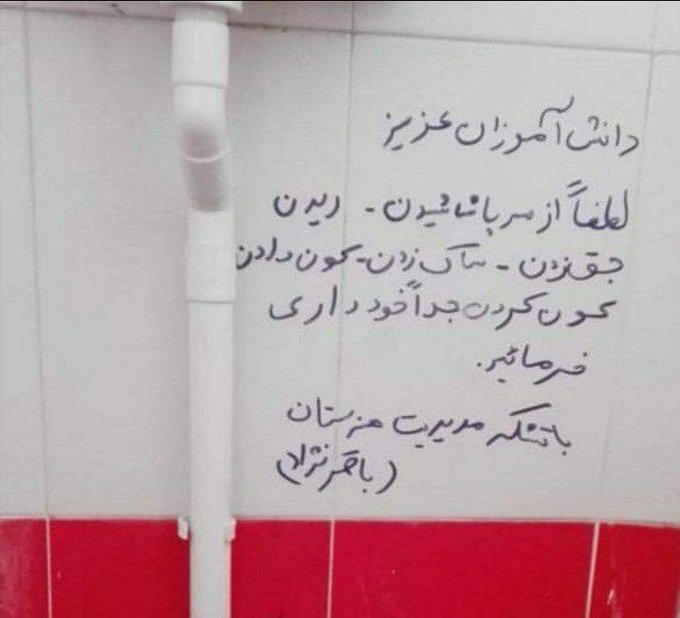 دانش آموزان عزیز
لطفاً از سرپا شاشیدن - ریدن
جق زدن - ساک زدن - کون دادن
کون کردن جداً خودداری
فرمائید.
باتشکر مدیریت هنرستان
(باقرنژاد)